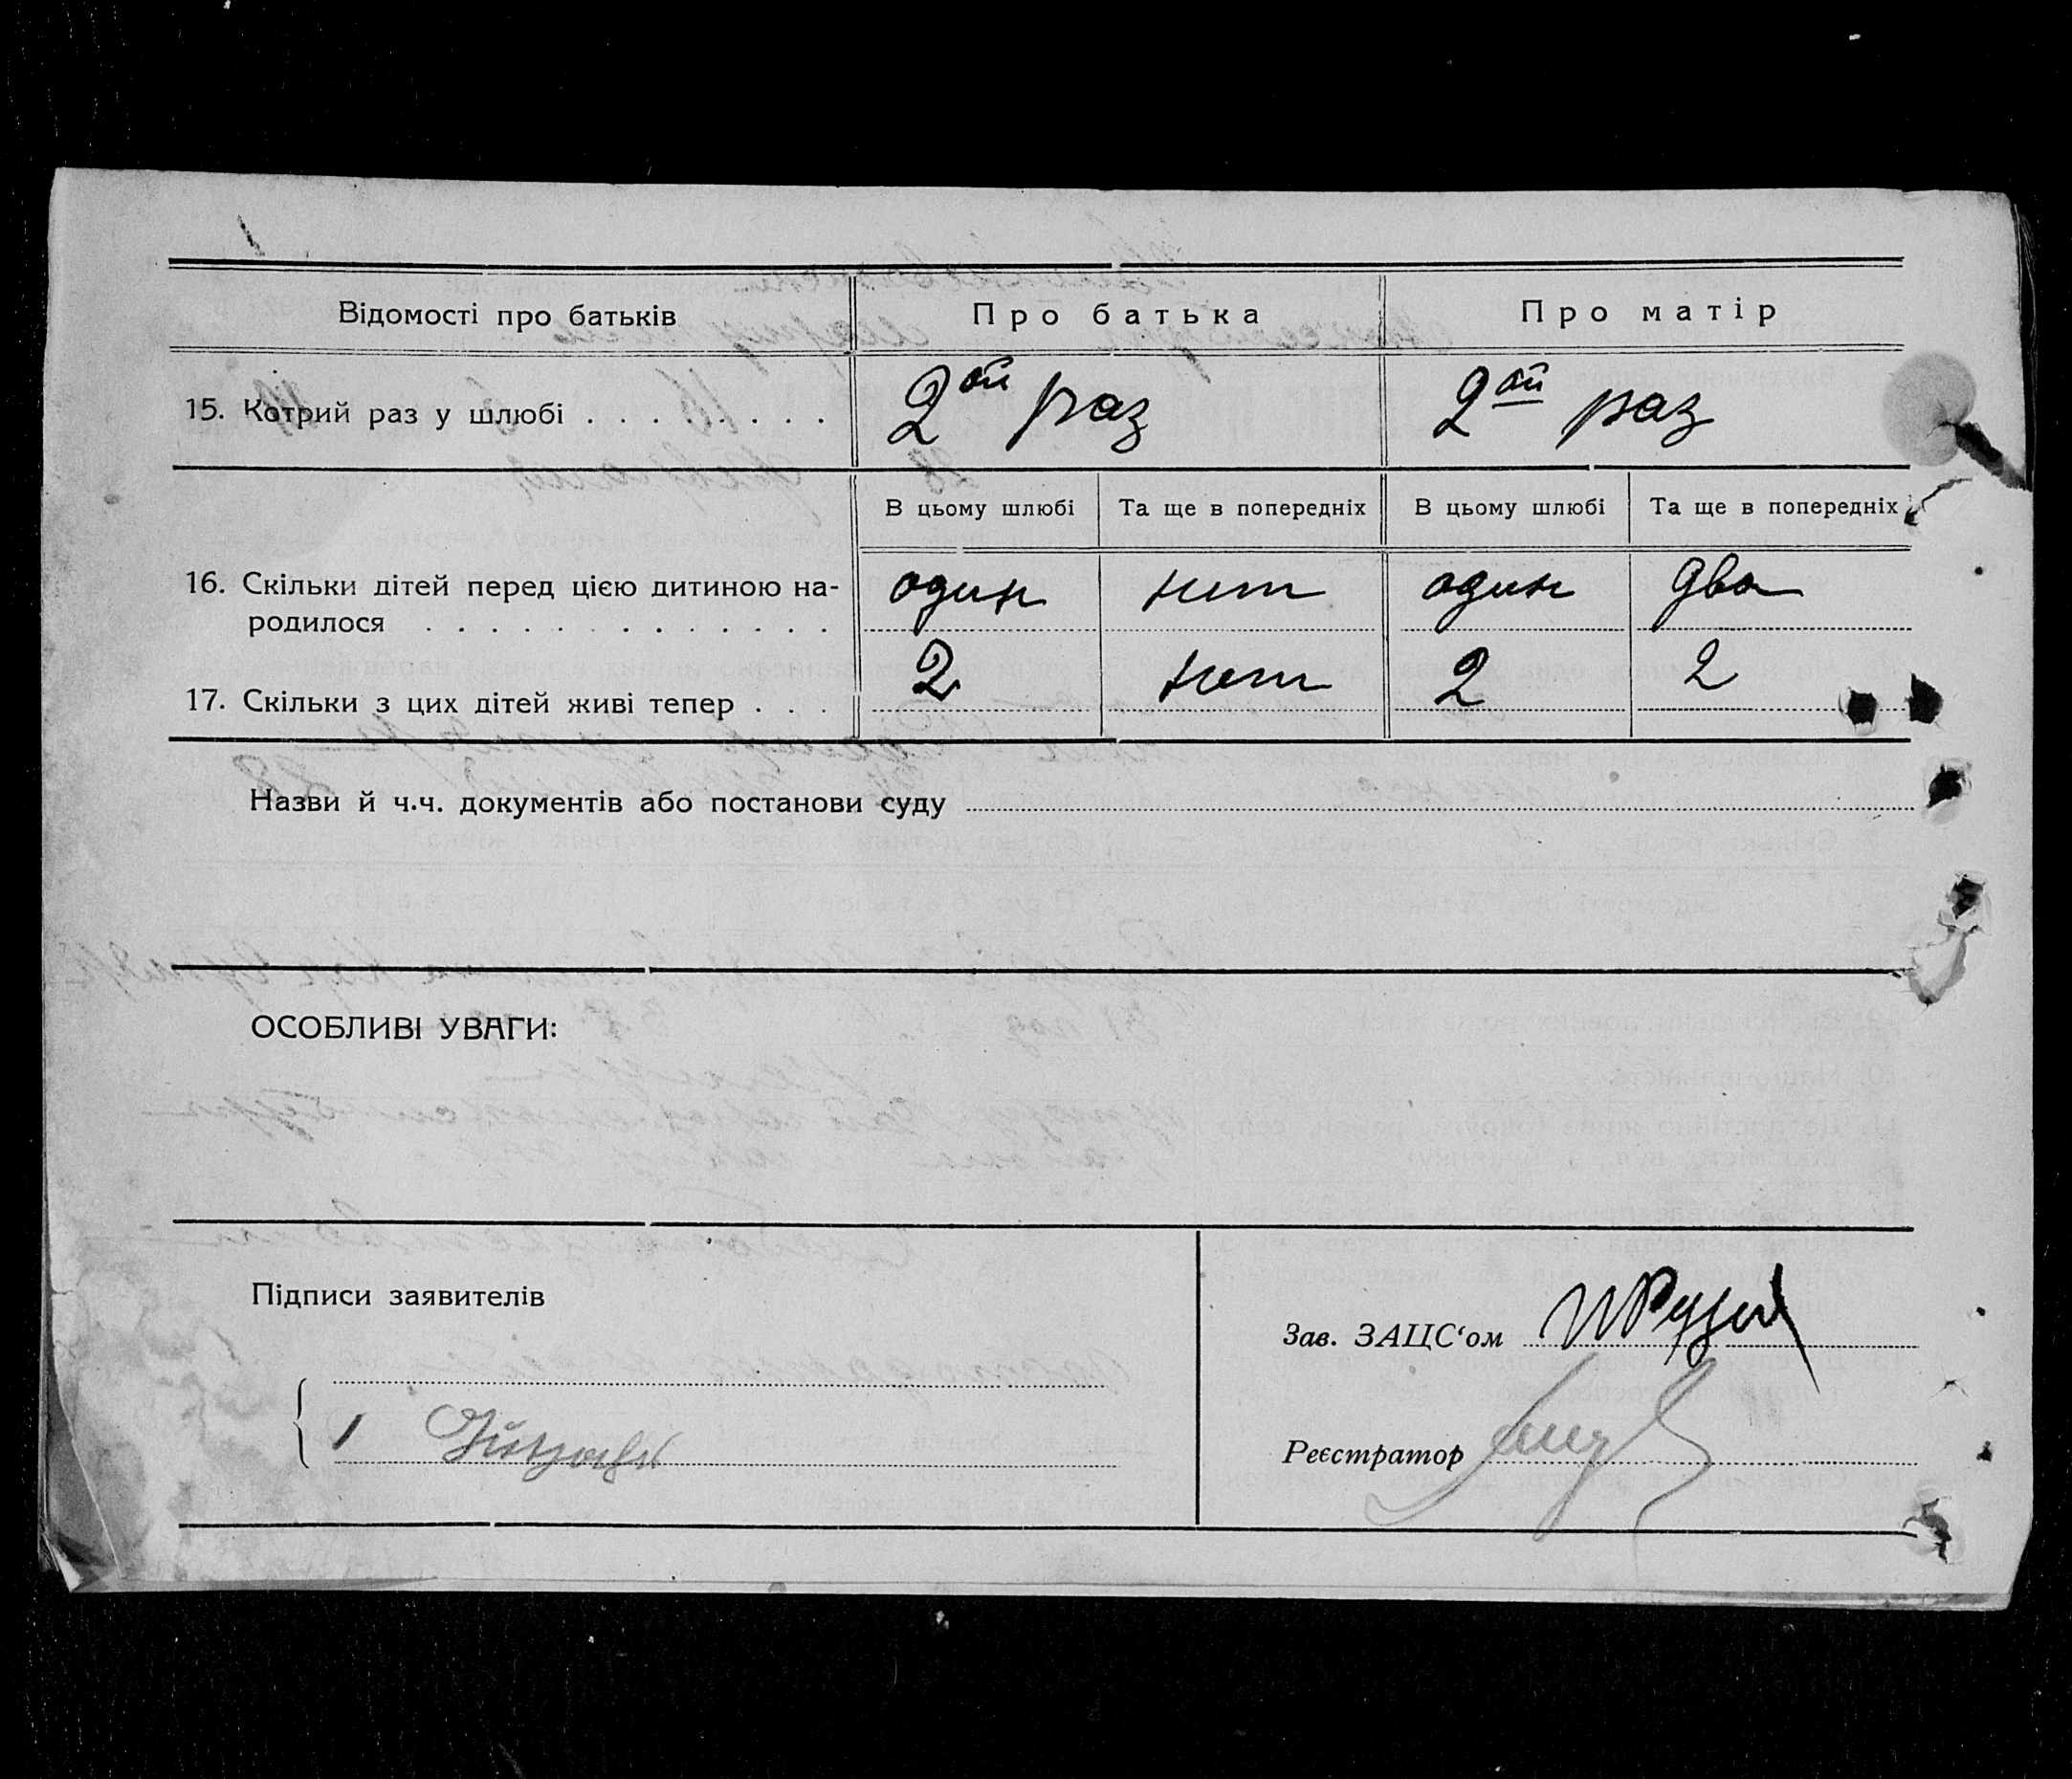 Відомості про батьків
Про батька
Про матір
15. Котрий раз у шлюбі . . . . . . . .
2ой раз
2ой раз
В цьому шлюбі
Та ще в попередніх
В цьому шлюбі
Та ще в попередніх
16. Скільки дітей перед цією дитиною на-
родилося . . . . . . . . . . . . .
один
нет
один
два
17. Скільки з цих дітей живі тепер . . .
2
нет
2
2
Назви й ч.ч. документів або постанови суду
ОСОБЛИВІ УВАГИ:
Підписи заявителів
Зав. ЗАЦС‘ом
Реєстратор